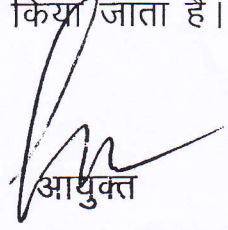 किया जाता है।
आयुक्त